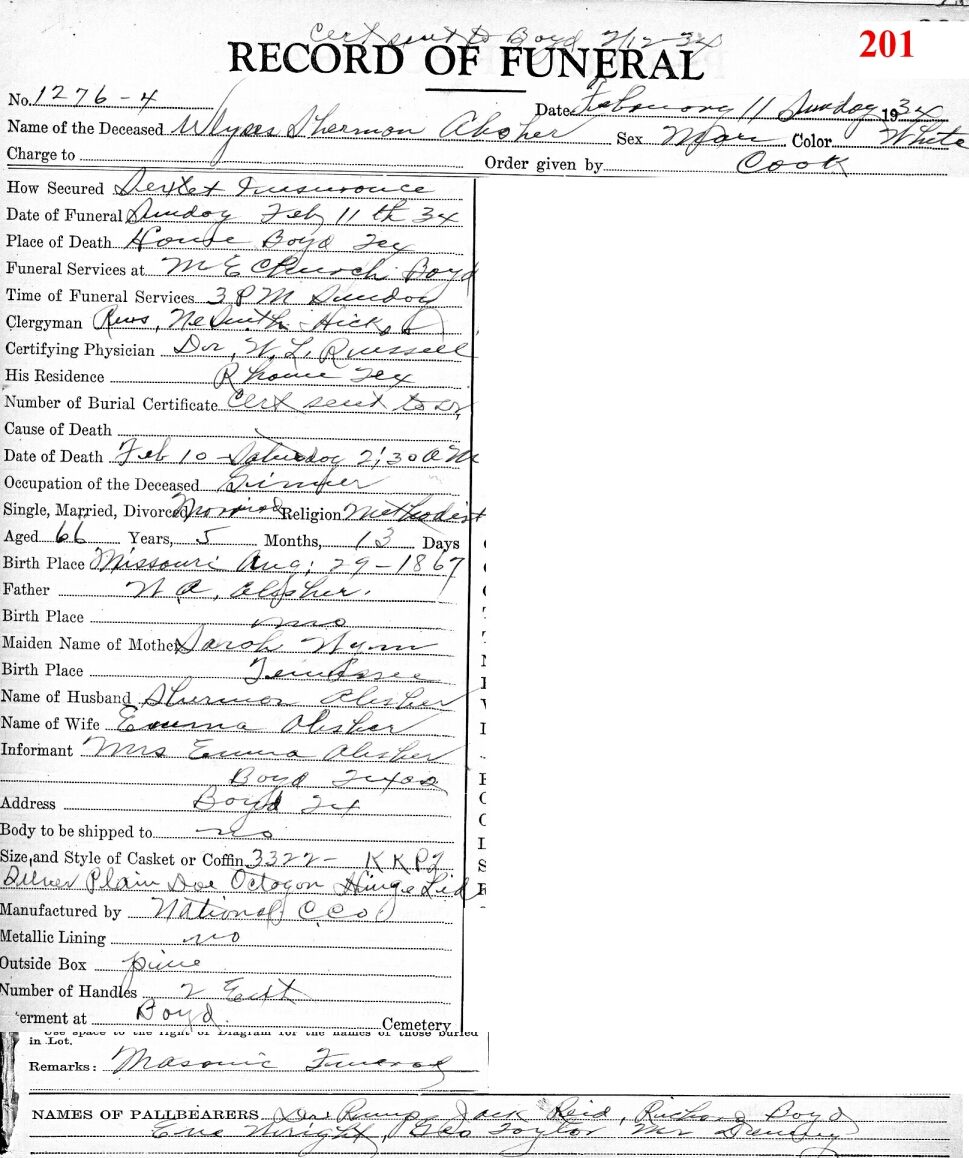 Cert sent to Boyd 2/12-34
201
RECORD OF FUNERAL
No. 1276-4
Date February 11 Sunday 1934
Name of the Deceased Ulyses Sherman Alsher Sex Man Color White
Charge to
Order given by Cook
How Secured Insurance
Date of Funeral Sunday Feb 11th 34
Place of Death House Boyd Tex
Funeral Services at M E Church Boyd
Time of Funeral Services 3 PM Sunday
Clergyman Revs, Hicks
Certifying Physician Dr, W. L. Russell
His Residence Rhome Tex
Number of Burial Certificate Cert sent to Dr,
Cause of Death
Date of Death Feb 10 - Saturday 2;30 AM
Occupation of the Deceased Ginner
Single, Married, Divorced Married Religion Methodist
Aged 66 Years, 5 Months, 13 Days
Birth Place Missouri Aug; 29-1867
Father W A, Alsher.
Birth Place mo
Maiden Name of Mother Sarah Wynn
Birth Place Tennessee
Name of Husband Sherman Alsher
Name of Wife Emma Alsher
Informant Mrs Emma Alsher
Boyd Texas
Address Boyd Tex
Body to be shipped to no
Size and Style of Casket or Coffin 3322- KKPZ
Silver Plain Doe Octagon Hinge Lid
Manufactured by National C Co
Metallic Lining no
Outside Box pine
Number of Handles 2 Ext
erment at Boyd. Cemetery
Use space to the right of Diagram for the names of those buried
in Lot.
Remarks: Masonic Funeral
NAMES OF PALLBEARERS Jack Reid, Richard Boyd
Wright, Geo Taylor Mr